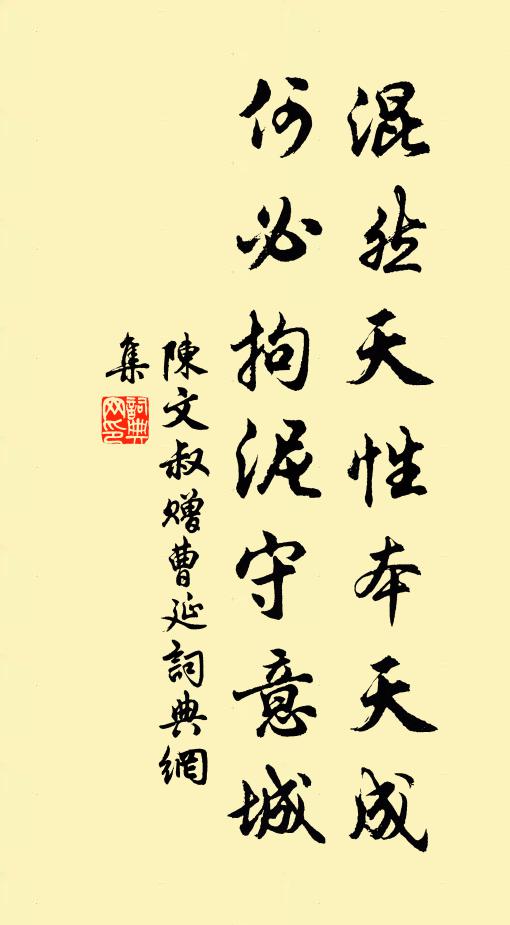 混然天性本天成
何必拘泥守意城
陳文叔贈曹延詞典網
集
詞典網印